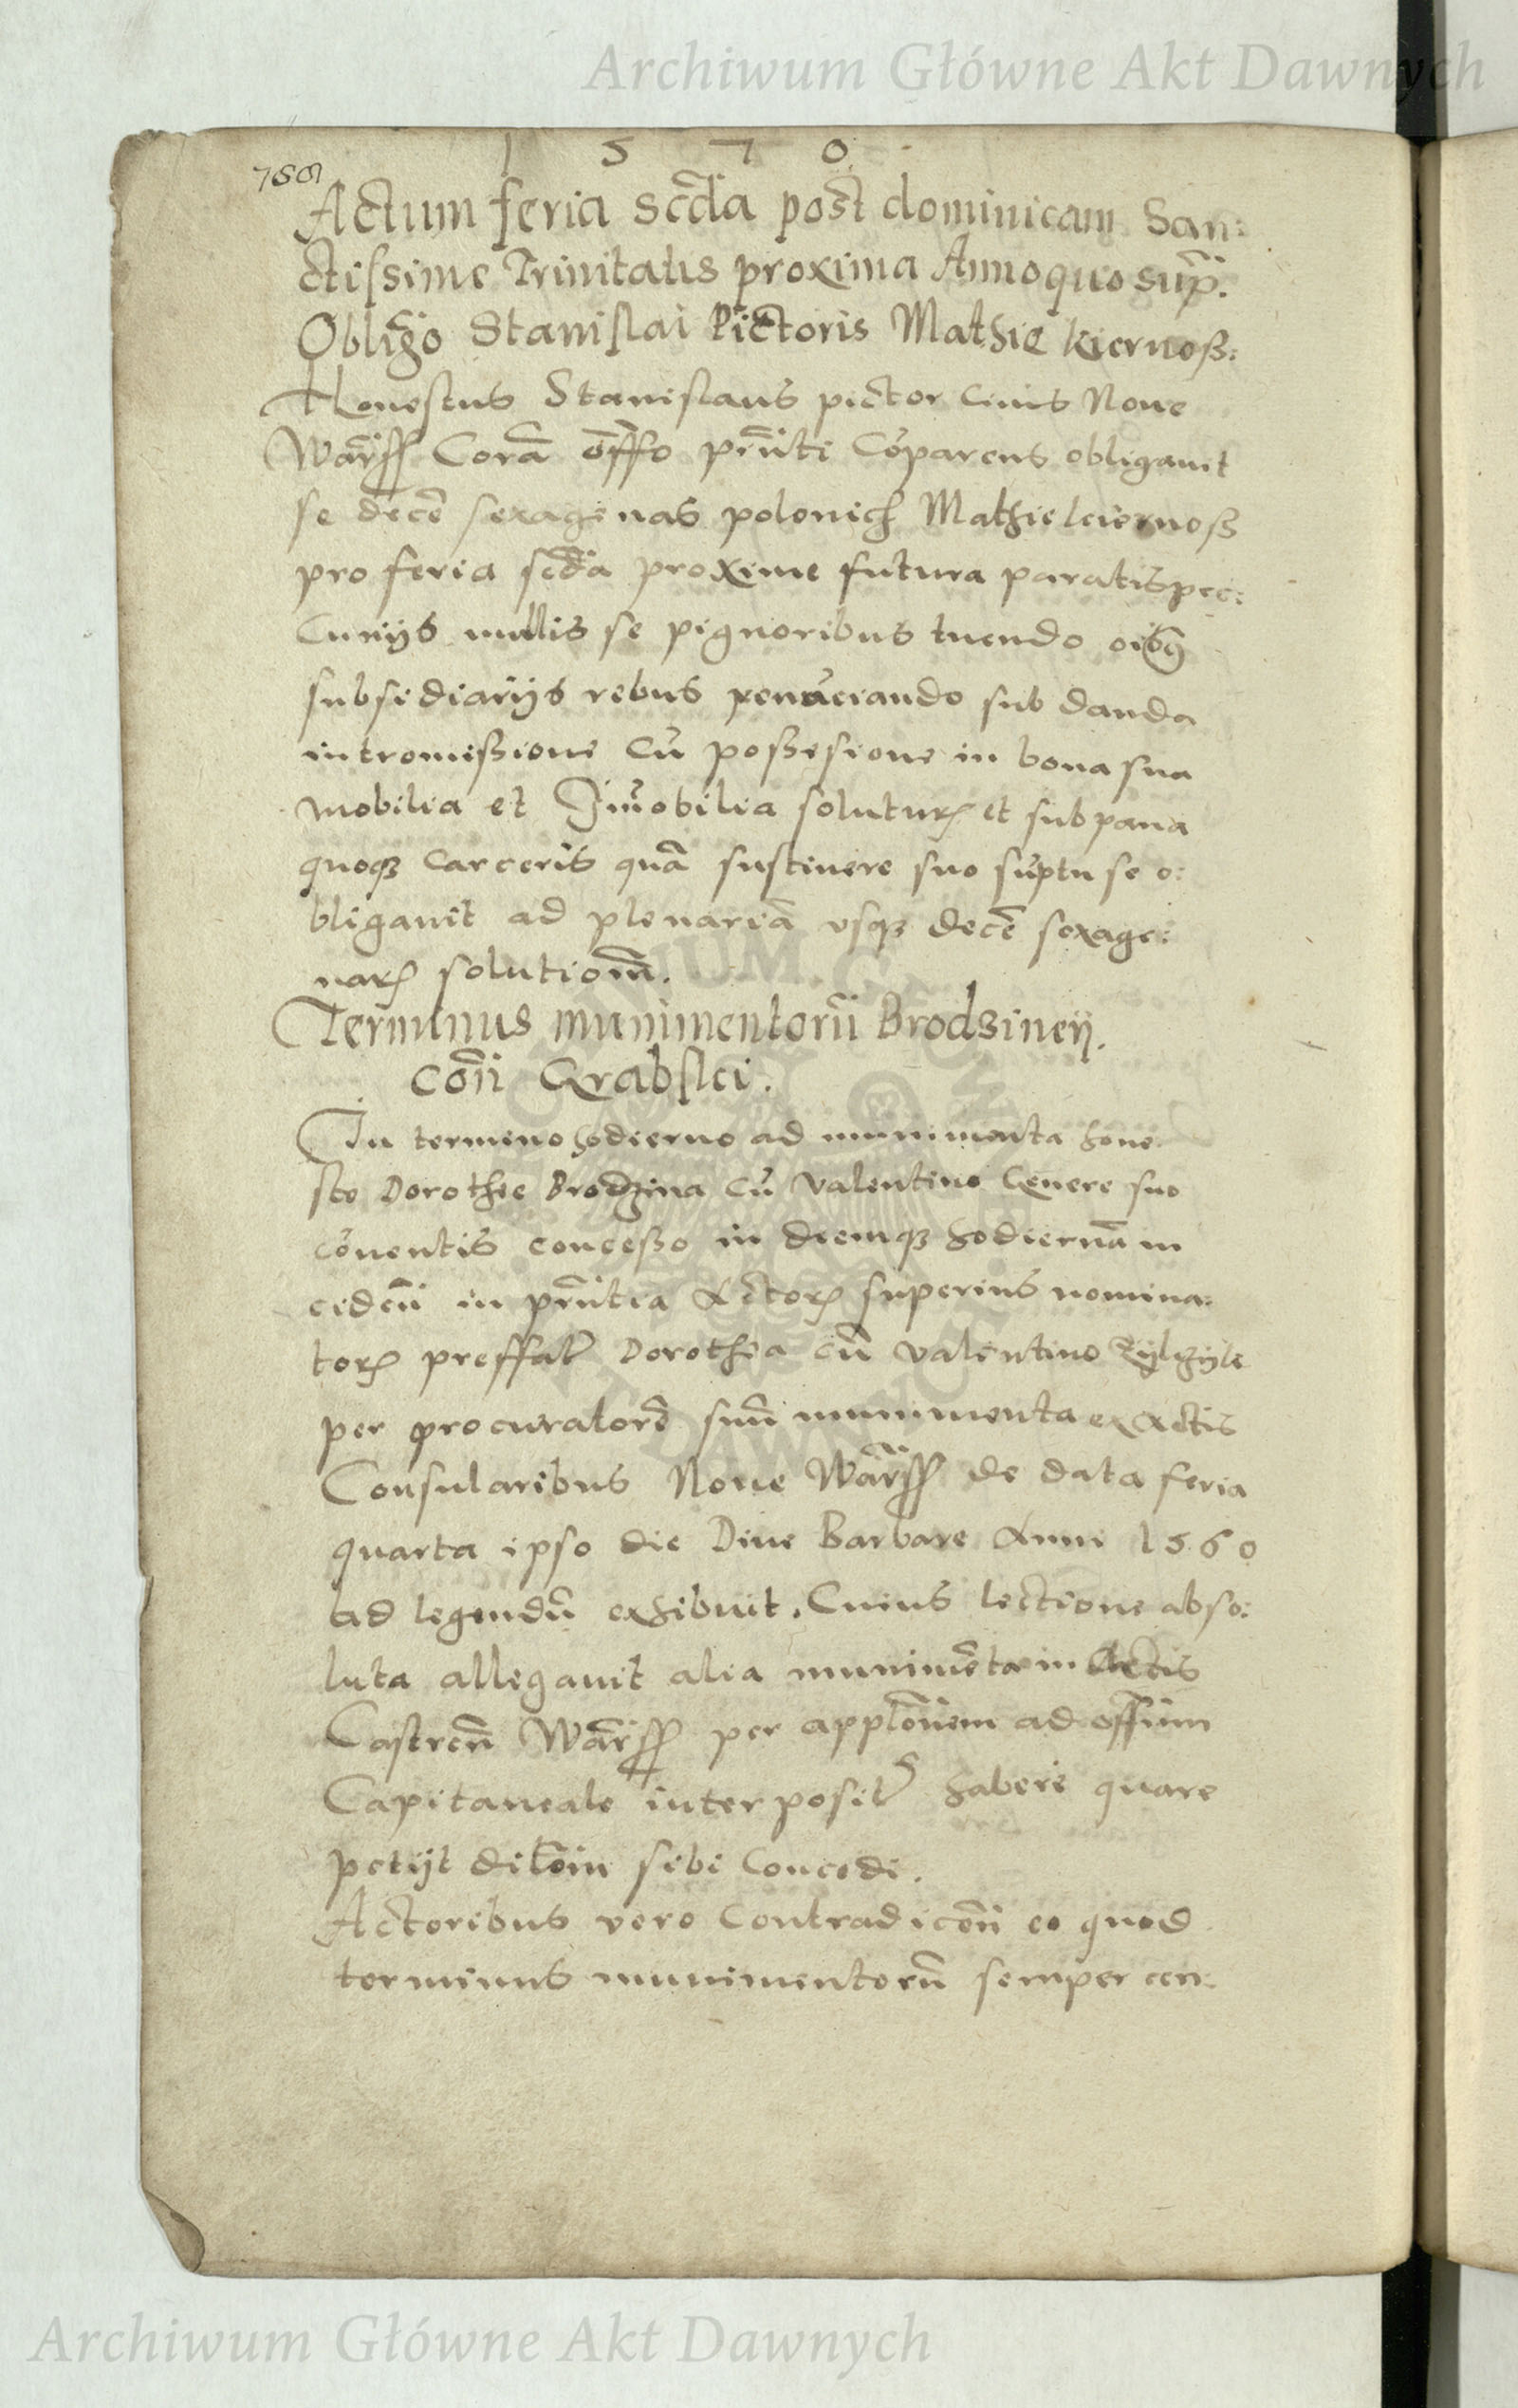 Archiwum Główne Akt Dawnych
1 5 7 0
Actum feria scda post dominicam San:
ctissime Trinitatis proxima Anno quo sup.
Obligo Stanislai Pictoris Mathie Kiernoß:
Honestus Stanislaus pictor Civis Nove
Warss Corã offo pñti Cõparens obligavit
se decẽ sexagenas polonich Mathie kiernoß
pro feria scda proxime futura paratis pec:
Cunijs nullis se pignoribus tuendo oibq
subsediarijs rebus renũciando sub danda
intromißione Cũ poßesione in bona sua
mobilia et Im̃obilia soluturꝝ et sub pana
quoqꝫ Carceris quã sustinere suo sũptu se o:
bligavit ad plenariã usqꝫ decẽ sexage:
narꝝ solutiom̃.
Terminus munimentorũ Brodziney.
Coñ Grabskei.
In termino hodierno ad munimenta hone
ste Dorothee Brodzina Cũ Valentino Genere suo
cõventis conceßo in diemqꝫ hodiernã in
cideñ in pñtia Actorꝝ superius nomina:
torꝝ preffatꝰ Dorothea cũ Valentino
per procuratorẽ suũ munimenta ex Actis
Consularibus Nove Warss de data feria
quarta ipso die Dive Barbare Anni 1560
ad legendũ exhibuit. Cuius lectione abso:
luta allegavit alia munimẽta in Actis
Castreñ Warss per applõnem ad offium
Capitaneale interposit habere quare
petijt dilõin sibi Concedi.
Actoribus vero Contradiceñ eo quod
terminus munimentorũ semper cen:
Archiwum Główne Akt Dawnych